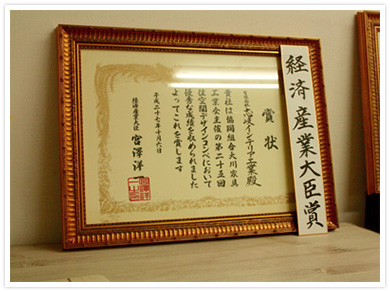 経済産業大臣賞
賞状
インテリア工業殿
貴社は協同組合大川家具
工業会主催の第二十五回
住空間デザインコンペにおいて
優秀な成績を収められました
よってこれを賞します
平成二十七年十月六日
経済産業大臣
宮澤洋一